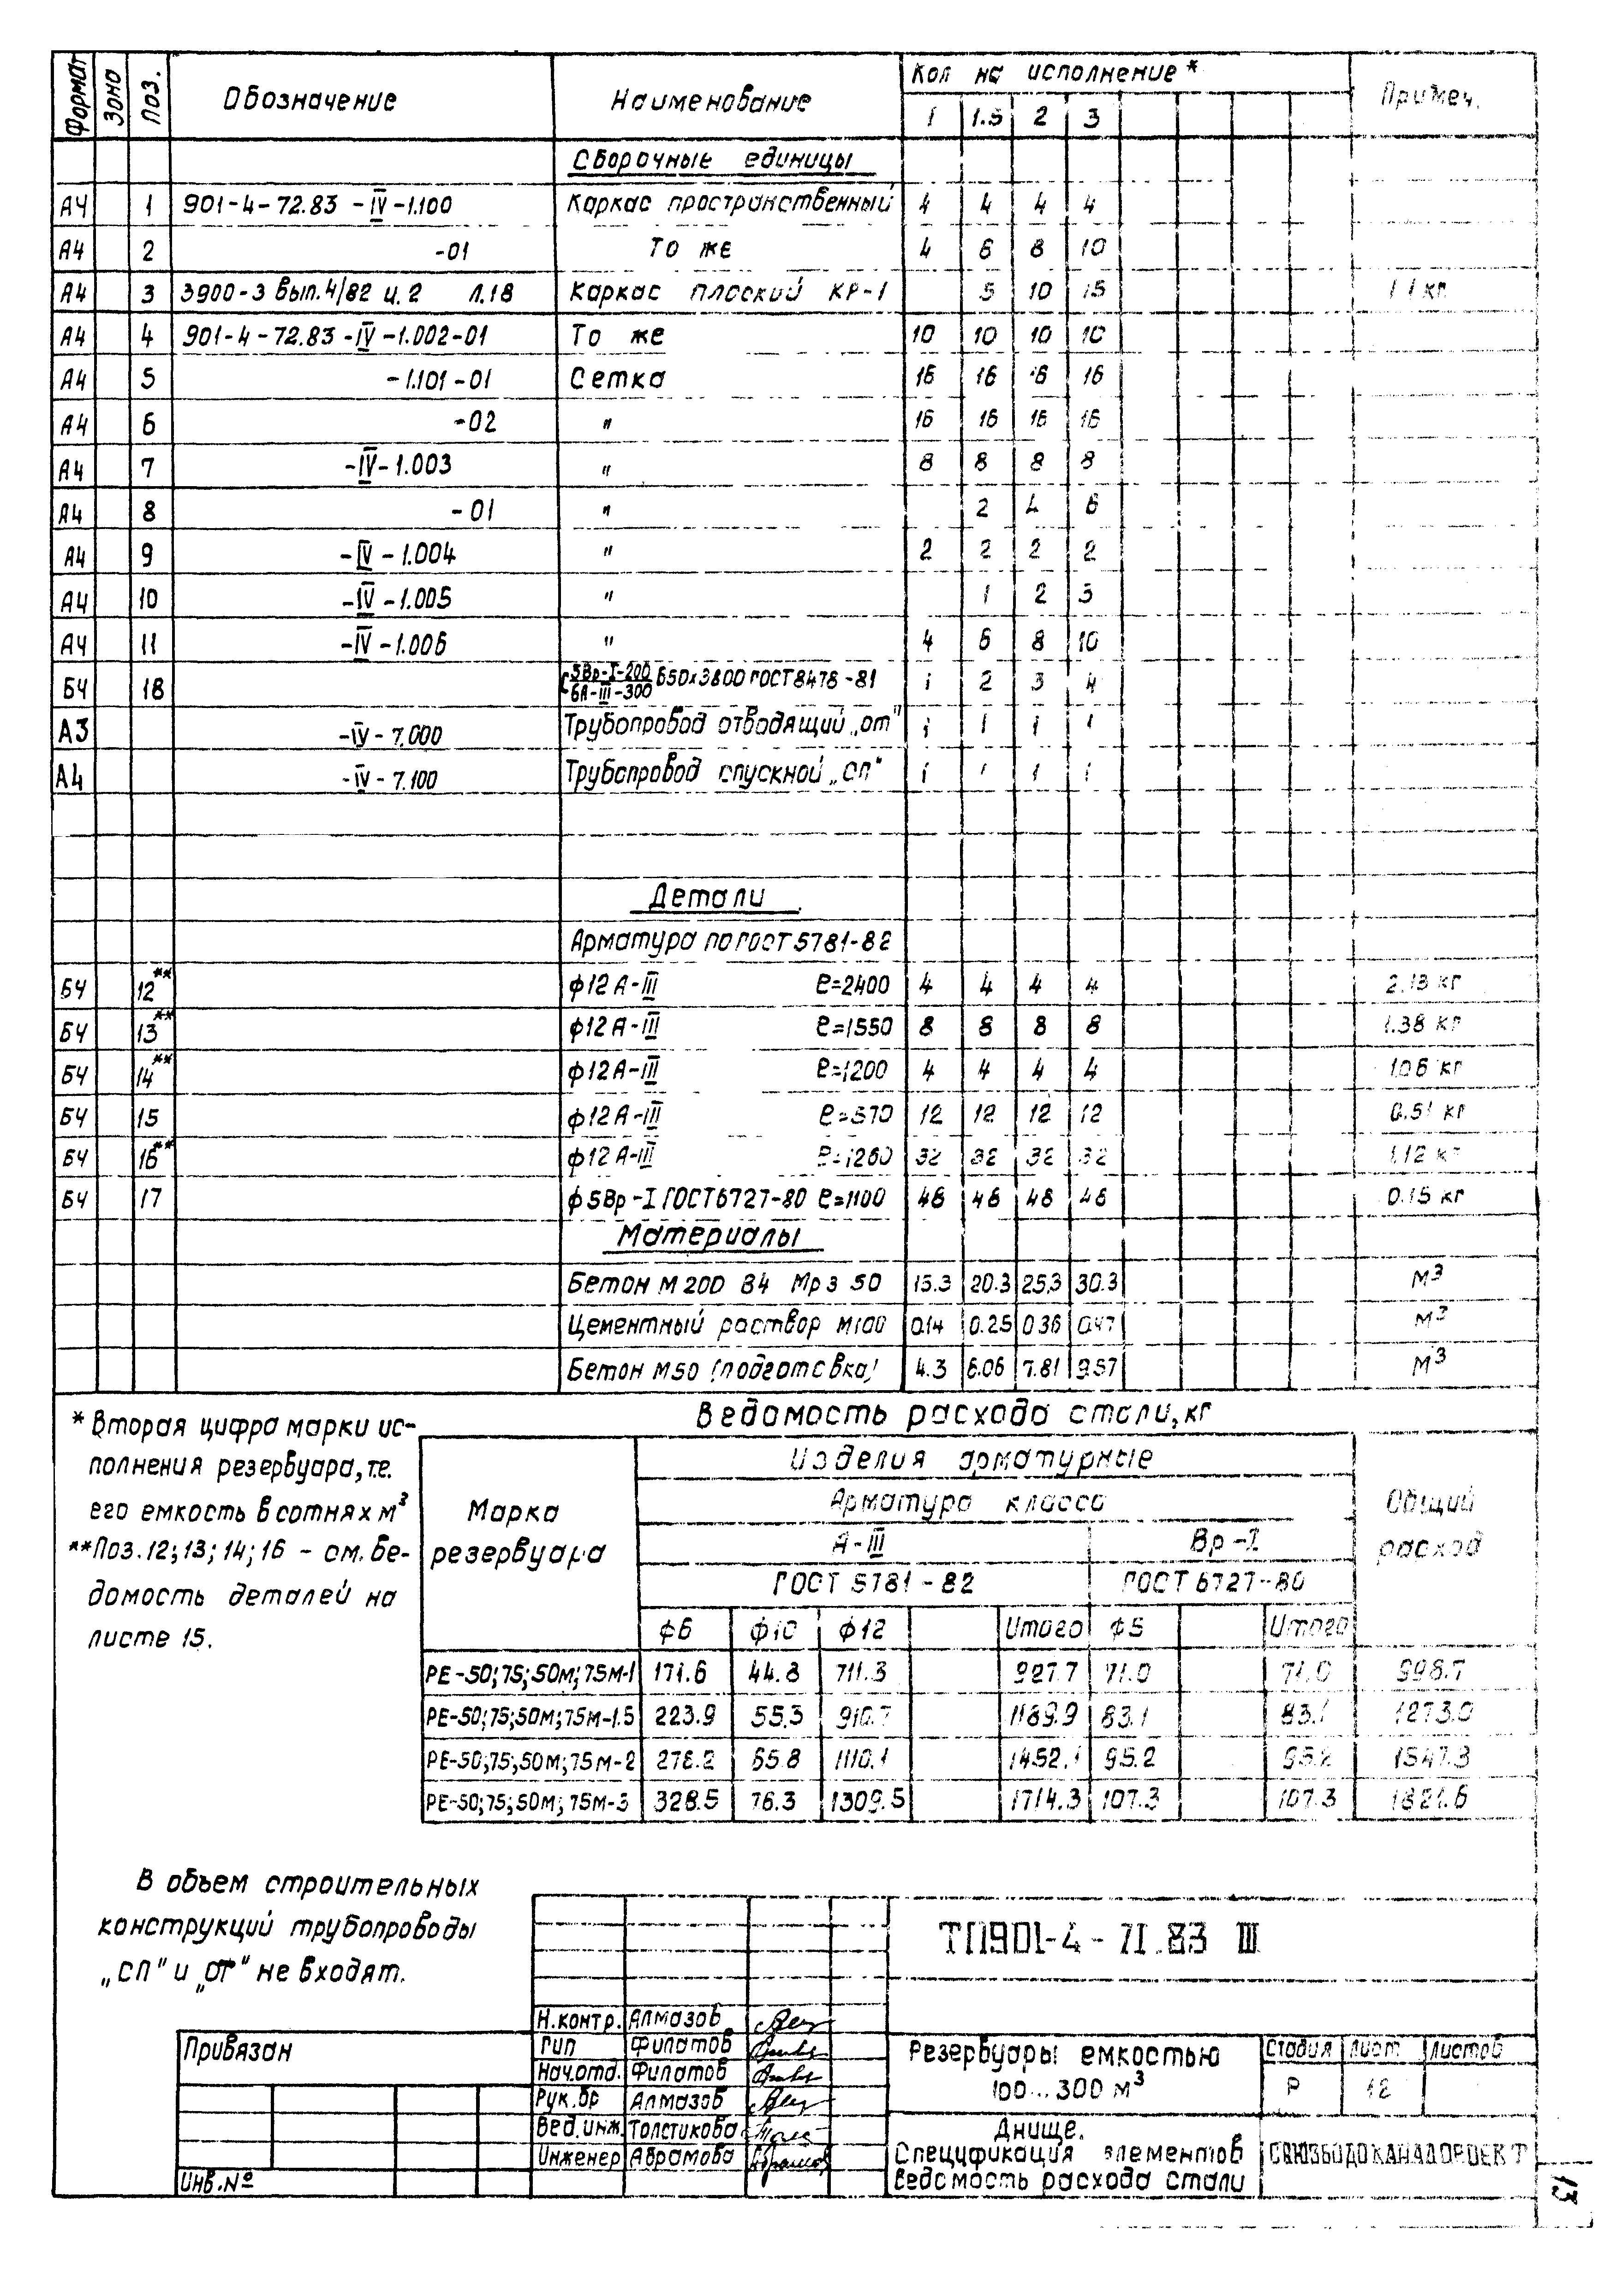 Формат Зона Поз. Обозначение Наименование Кол на исполнение* Примеч.
1 1.5 2 3
Сборочные единицы
А4 1 901-4-72.83 -IV-1.100 Каркас пространственный 4 4 4 4
А4 2 -01 То же 4 6 8 10
А4 3 3900-3 Вып.4/82 ч.2 Л.18 Каркас плоский КР-1 5 10 15 1.1 кг
А4 4 901-4-72.83 -IV-1.002-01 То же 10 10 10 10
А4 5 -1.101-01 Сетка 16 16 16 16
А4 6 -02 " 16 16 16 16
А4 7 -IV-1.003 " 8 8 8 8
А4 8 -01 " 2 4 6
А4 9 -IV-1.004 " 2 2 2 2
А4 10 -IV-1.005 " 1 2 3
А4 11 -IV-1.006 " 4 6 8 10
БЧ 18 С 5Вр-I-200/6А-III-300 650х3800 ГОСТ 8478-81 1 2 3 4
А3 -IV-7.000 Трубопровод отводящий „от" 1 1 1 1
А4 -IV-7.100 Трубопровод спускной „сп" 1 1 1 1
Детали
Арматура по ГОСТ 5781-82
БЧ 12** ф12 А-III ℓ=2400 4 4 4 4 2.13 кг
БЧ 13** ф12 А-III ℓ=1550 8 8 8 8 1.38 кг
БЧ 14** ф12 А-III ℓ=1200 4 4 4 4 1.06 кг
БЧ 15 ф12 А-III ℓ=570 12 12 12 12 0.51 кг
БЧ 16** ф12 А-III ℓ=1260 32 32 32 32 1.12 кг
БЧ 17 ф5Вр-I ГОСТ 6727-80 ℓ=1100 46 46 46 46 0.15 кг
Материалы
Бетон М200 В4 Мрз 50 15.3 20.3 25.3 30.3 м³
Цементный раствор М100 0.14 0.25 0.36 0.47 м³
Бетон М50 (подготовка) 4.3 6.06 7.81 9.57 м³
* Вторая цифра марки ис-
полнения резервуара, т.е.
его емкость в сотнях м³
**Поз. 12; 13; 14; 16 - см. Ве-
домость деталей на
листе 15.
Ведомость расхода стали, кг
Марка резервуара Изделия арматурные Общий расход
Арматура класса
А-III Вр-I
ГОСТ 5781-82 ГОСТ 6727-80
ф6 ф10 ф12 Итого ф5 Итого
РЕ-50;75;50М;75М-1 171.6 44.8 711.3 927.7 71.0 71.0 998.7
РЕ-50;75;50М;75М-1.5 223.9 55.3 910.7 1189.9 83.1 83.1 1273.0
РЕ-50;75;50М;75М-2 276.2 65.8 1110.1 1452.1 95.2 95.2 1547.3
РЕ-50;75;50М;75М-3 328.5 76.3 1309.5 1714.3 107.3 107.3 1821.6
В объем строительных
конструкций трубопроводы
„сп" и „от" не входят.
ТП901-4-71.83 III
Н.контр. Алмазов
Гип Филатов
Нач.отд. Филатов
Рук.бр Алмазов
Вед.инж. Толстикова
Инженер Абрамова
Привязан
Инв.№
Резервуары емкостью
100...300 м³
Стадия Лист Листов
Р 12
Днище.
Спецификация элементов
Ведомость расхода стали
СОЮЗВОДОКАНАЛПРОЕКТ
13